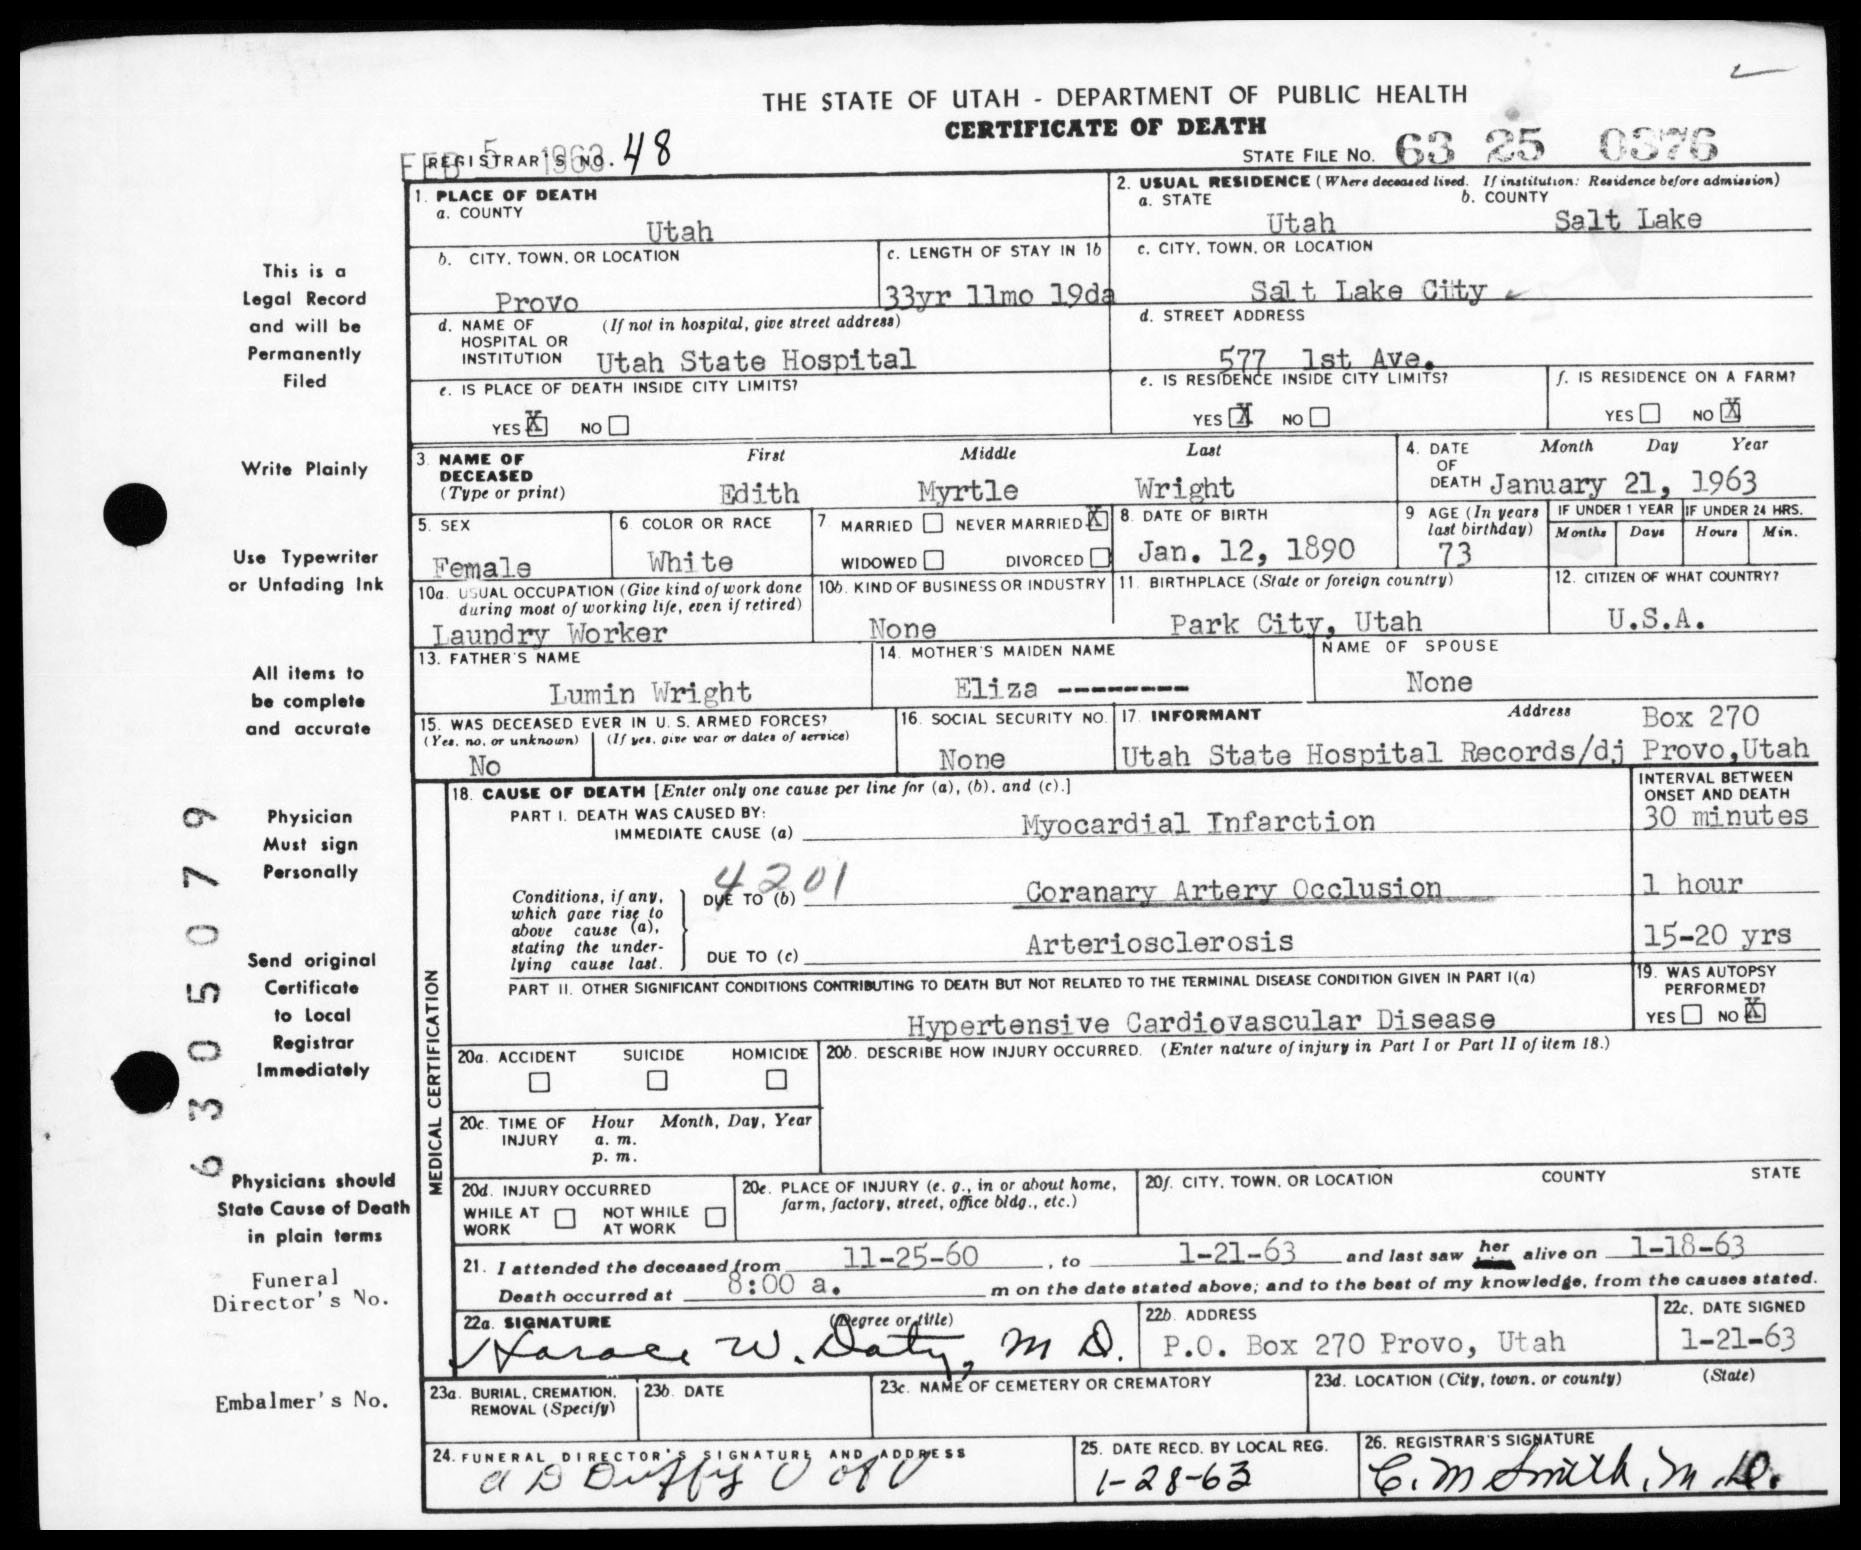 THE STATE OF UTAH - DEPARTMENT OF PUBLIC HEALTH
CERTIFICATE OF DEATH
FEB 5 1963
REGISTRAR'S NO. 48
STATE FILE NO. 63 25 0376
1. PLACE OF DEATH
a. COUNTY
Utah
2. USUAL RESIDENCE (Where deceased lived. If institution: Residence before admission)
a. STATE
Utah
b. COUNTY
Salt Lake
b. CITY, TOWN, OR LOCATION
Provo
c. LENGTH OF STAY IN 1b
33yr 11mo 19da
c. CITY, TOWN, OR LOCATION
Salt Lake City
d. NAME OF HOSPITAL OR INSTITUTION
(If not in hospital, give street address)
Utah State Hospital
d. STREET ADDRESS
577 1st Ave.
e. IS PLACE OF DEATH INSIDE CITY LIMITS?
YES X NO
e. IS RESIDENCE INSIDE CITY LIMITS?
YES X NO
f. IS RESIDENCE ON A FARM?
YES NO X
3. NAME OF DECEASED
(Type or print)
First Middle Last
Edith Myrtle Wright
4. DATE OF DEATH
Month Day Year
January 21, 1963
5. SEX
Female
6. COLOR OR RACE
White
7. MARRIED NEVER MARRIED X
WIDOWED DIVORCED
8. DATE OF BIRTH
Jan. 12, 1890
9 AGE (In years last birthday)
73
IF UNDER 1 YEAR
Months Days
IF UNDER 24 HRS.
Hours Min.
10a. USUAL OCCUPATION (Give kind of work done during most of working life, even if retired)
Laundry Worker
10b. KIND OF BUSINESS OR INDUSTRY
None
11. BIRTHPLACE (State or foreign country)
Park City, Utah
12. CITIZEN OF WHAT COUNTRY?
U.S.A.
13. FATHER'S NAME
Lumin Wright
14. MOTHER'S MAIDEN NAME
Eliza ---------
NAME OF SPOUSE
None
15. WAS DECEASED EVER IN U. S. ARMED FORCES?
(Yes, no, or unknown) (If yes, give war or dates of service)
No
16. SOCIAL SECURITY NO.
None
17. INFORMANT Address
Box 270
Utah State Hospital Records/dj Provo,Utah
MEDICAL CERTIFICATION
18. CAUSE OF DEATH [Enter only one cause per line for (a), (b), and (c).]
INTERVAL BETWEEN ONSET AND DEATH
PART I. DEATH WAS CAUSED BY:
IMMEDIATE CAUSE (a) Myocardial Infarction 30 minutes
4201
Conditions, if any, which gave rise to above cause (a), stating the underlying cause last.
DUE TO (b) Coranary Artery Occlusion 1 hour
DUE TO (c) Arteriosclerosis 15-20 yrs
PART II. OTHER SIGNIFICANT CONDITIONS CONTRIBUTING TO DEATH BUT NOT RELATED TO THE TERMINAL DISEASE CONDITION GIVEN IN PART I(a)
Hypertensive Cardiovascular Disease
19. WAS AUTOPSY PERFORMED?
YES NO X
20a. ACCIDENT SUICIDE HOMICIDE
20b. DESCRIBE HOW INJURY OCCURRED. (Enter nature of injury in Part I or Part II of item 18.)
20c. TIME OF INJURY
Hour Month, Day, Year
a. m.
p. m.
20d. INJURY OCCURRED
WHILE AT WORK NOT WHILE AT WORK
20e. PLACE OF INJURY (e. g., in or about home, farm, factory, street, office bldg., etc.)
20f. CITY, TOWN, OR LOCATION COUNTY STATE
21. I attended the deceased from 11-25-60, to 1-21-63 and last saw her alive on 1-18-63
Death occurred at 8:00 a. m on the date stated above; and to the best of my knowledge, from the causes stated.
22a. SIGNATURE (Degree or title)
Horace W. Daty, M D.
22b. ADDRESS
P.O. Box 270 Provo, Utah
22c. DATE SIGNED
1-21-63
23a. BURIAL, CREMATION, REMOVAL (Specify)
23b. DATE
23c. NAME OF CEMETERY OR CREMATORY
23d. LOCATION (City, town, or county) (State)
24. FUNERAL DIRECTOR'S SIGNATURE AND ADDRESS
A D Duffy U of U
25. DATE RECD. BY LOCAL REG.
1-28-63
26. REGISTRAR'S SIGNATURE
C. M Smith, M.D.
This is a
Legal Record
and will be
Permanently
Filed
Write Plainly
Use Typewriter
or Unfading Ink
All items to
be complete
and accurate
Physician
Must sign
Personally
Send original
Certificate
to Local
Registrar
Immediately
Physicians should
State Cause of Death
in plain terms
Funeral
Director's No.
Embalmer's No.
6305079